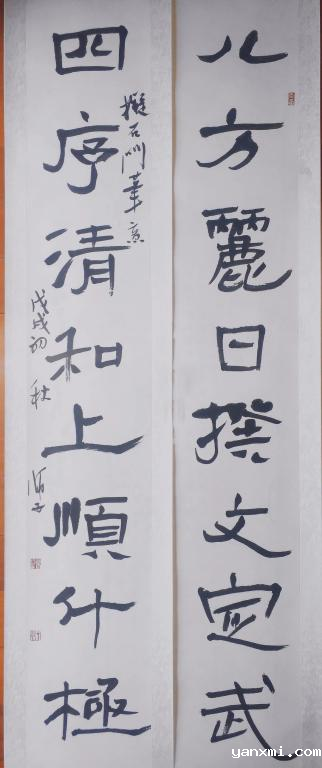 八方麗日撰文定武
四序清和上順什極
擬石門筆意
戊戌初秋
yanxmi.com